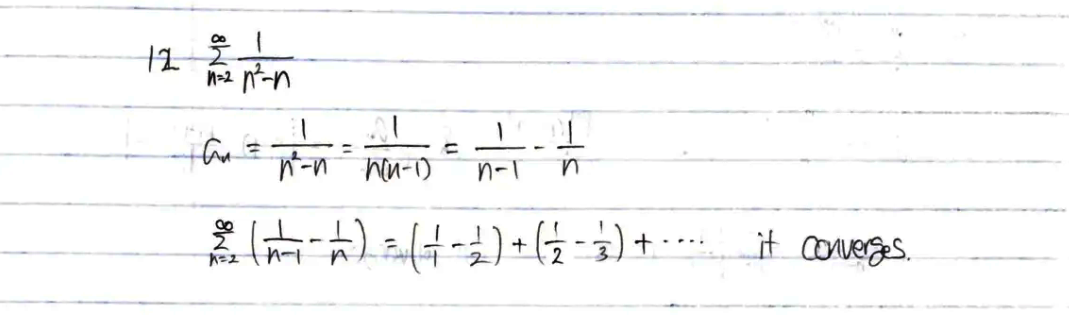 12 ∞Σn=2 1/(n²-n)
aₙ = 1/(n²-n) = 1/(n(n-1)) = 1/(n-1) - 1/n
∞Σn=2 (1/(n-1) - 1/n) = (1/1 - 1/2) + (1/2 - 1/3) + ···· it converges.